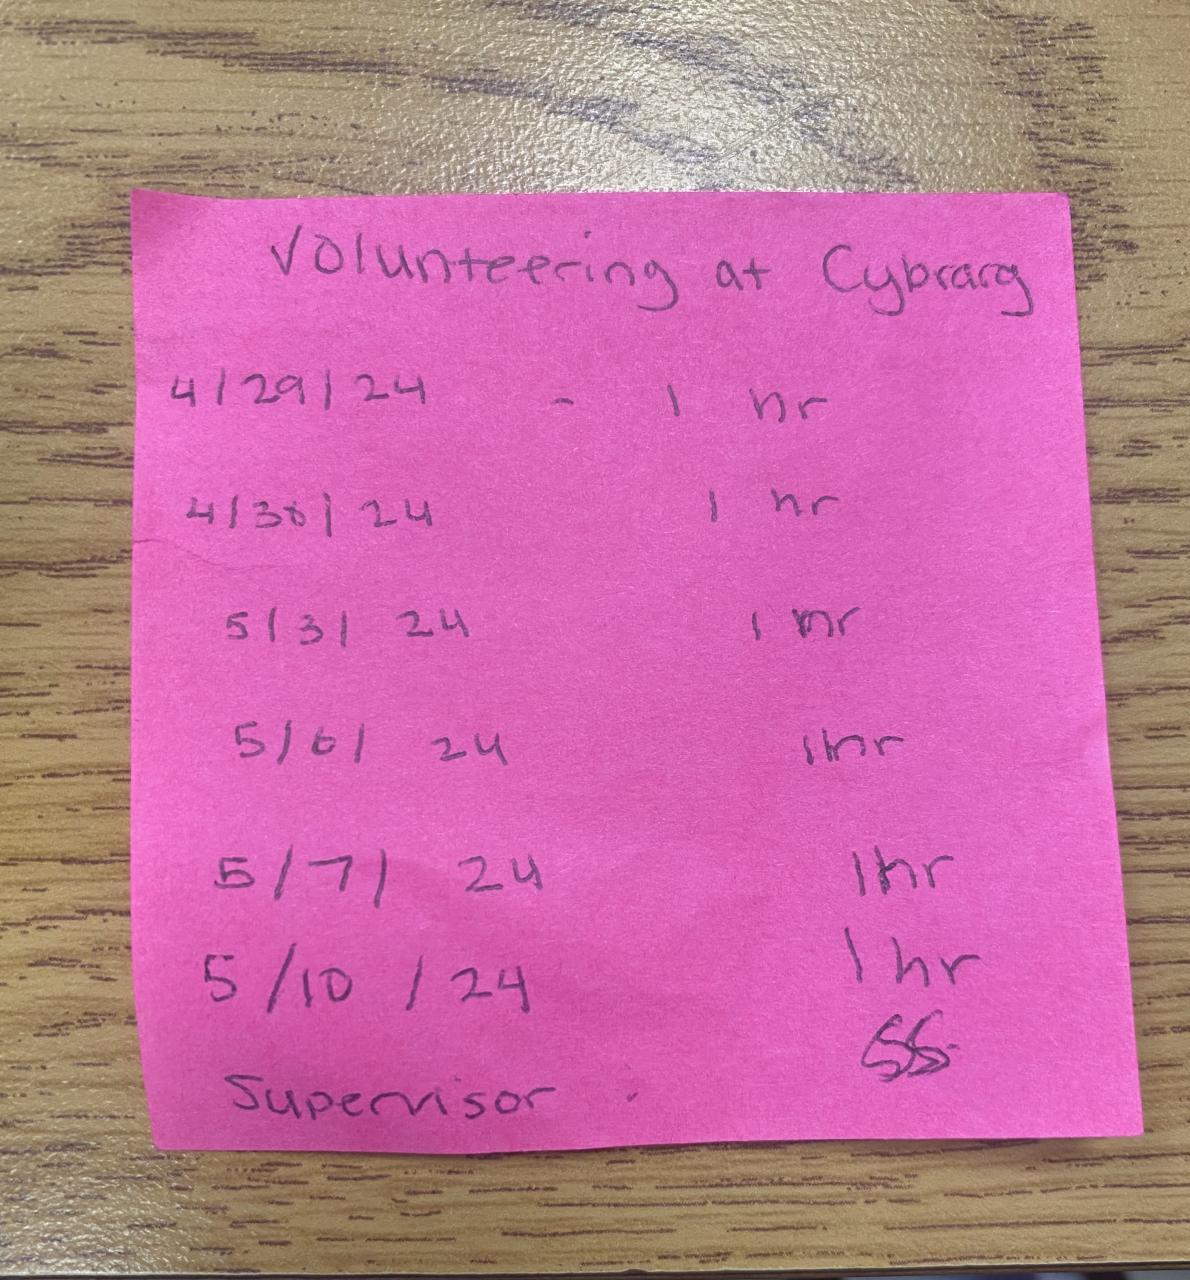 Volunteering at Cybrary
4/29/24 - 1 hr
4/30/24 1 hr
5/3/ 24 1 hr
5/6/ 24 1hr
5/7/ 24 1hr
5/10 / 24 1 hr
SS
Supervisor .